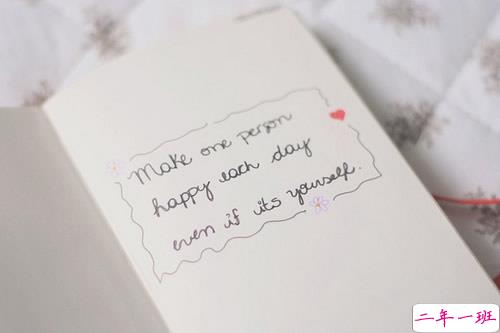 Make one person
happy each day
even if its yourself.
二年一班